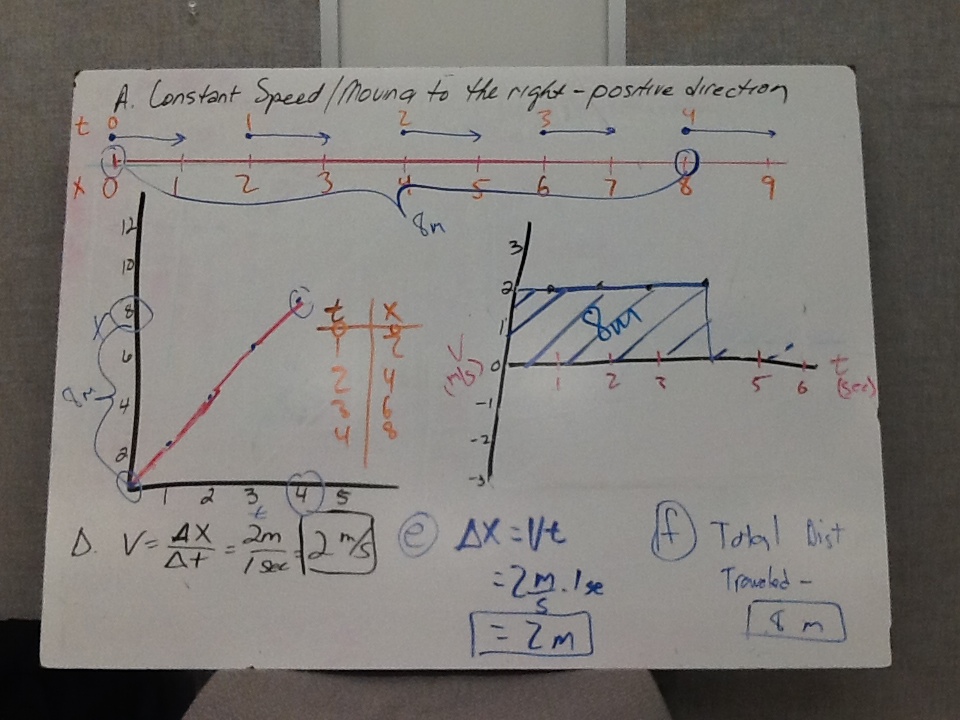 A. Constant Speed/Moving to the right - positive direction
t 0 1 2 3 4
x 0 1 2 3 4 5 6 7 8 9
8m
12
10
8
X
6
8m
4
2
1 2 3 4 5
t
t x
0 0
1 2
2 4
3 6
4 8
3
2
1
0
-1
-2
-3
V
(m/s)
8m
1 2 3 5 6
t
(sec)
D. V = ΔX/Δt = 2m/1sec = 2 m/s
e ΔX = Vt
= 2 m/s . 1 se
= 2 m
f Total Dist
Traveled -
8 m